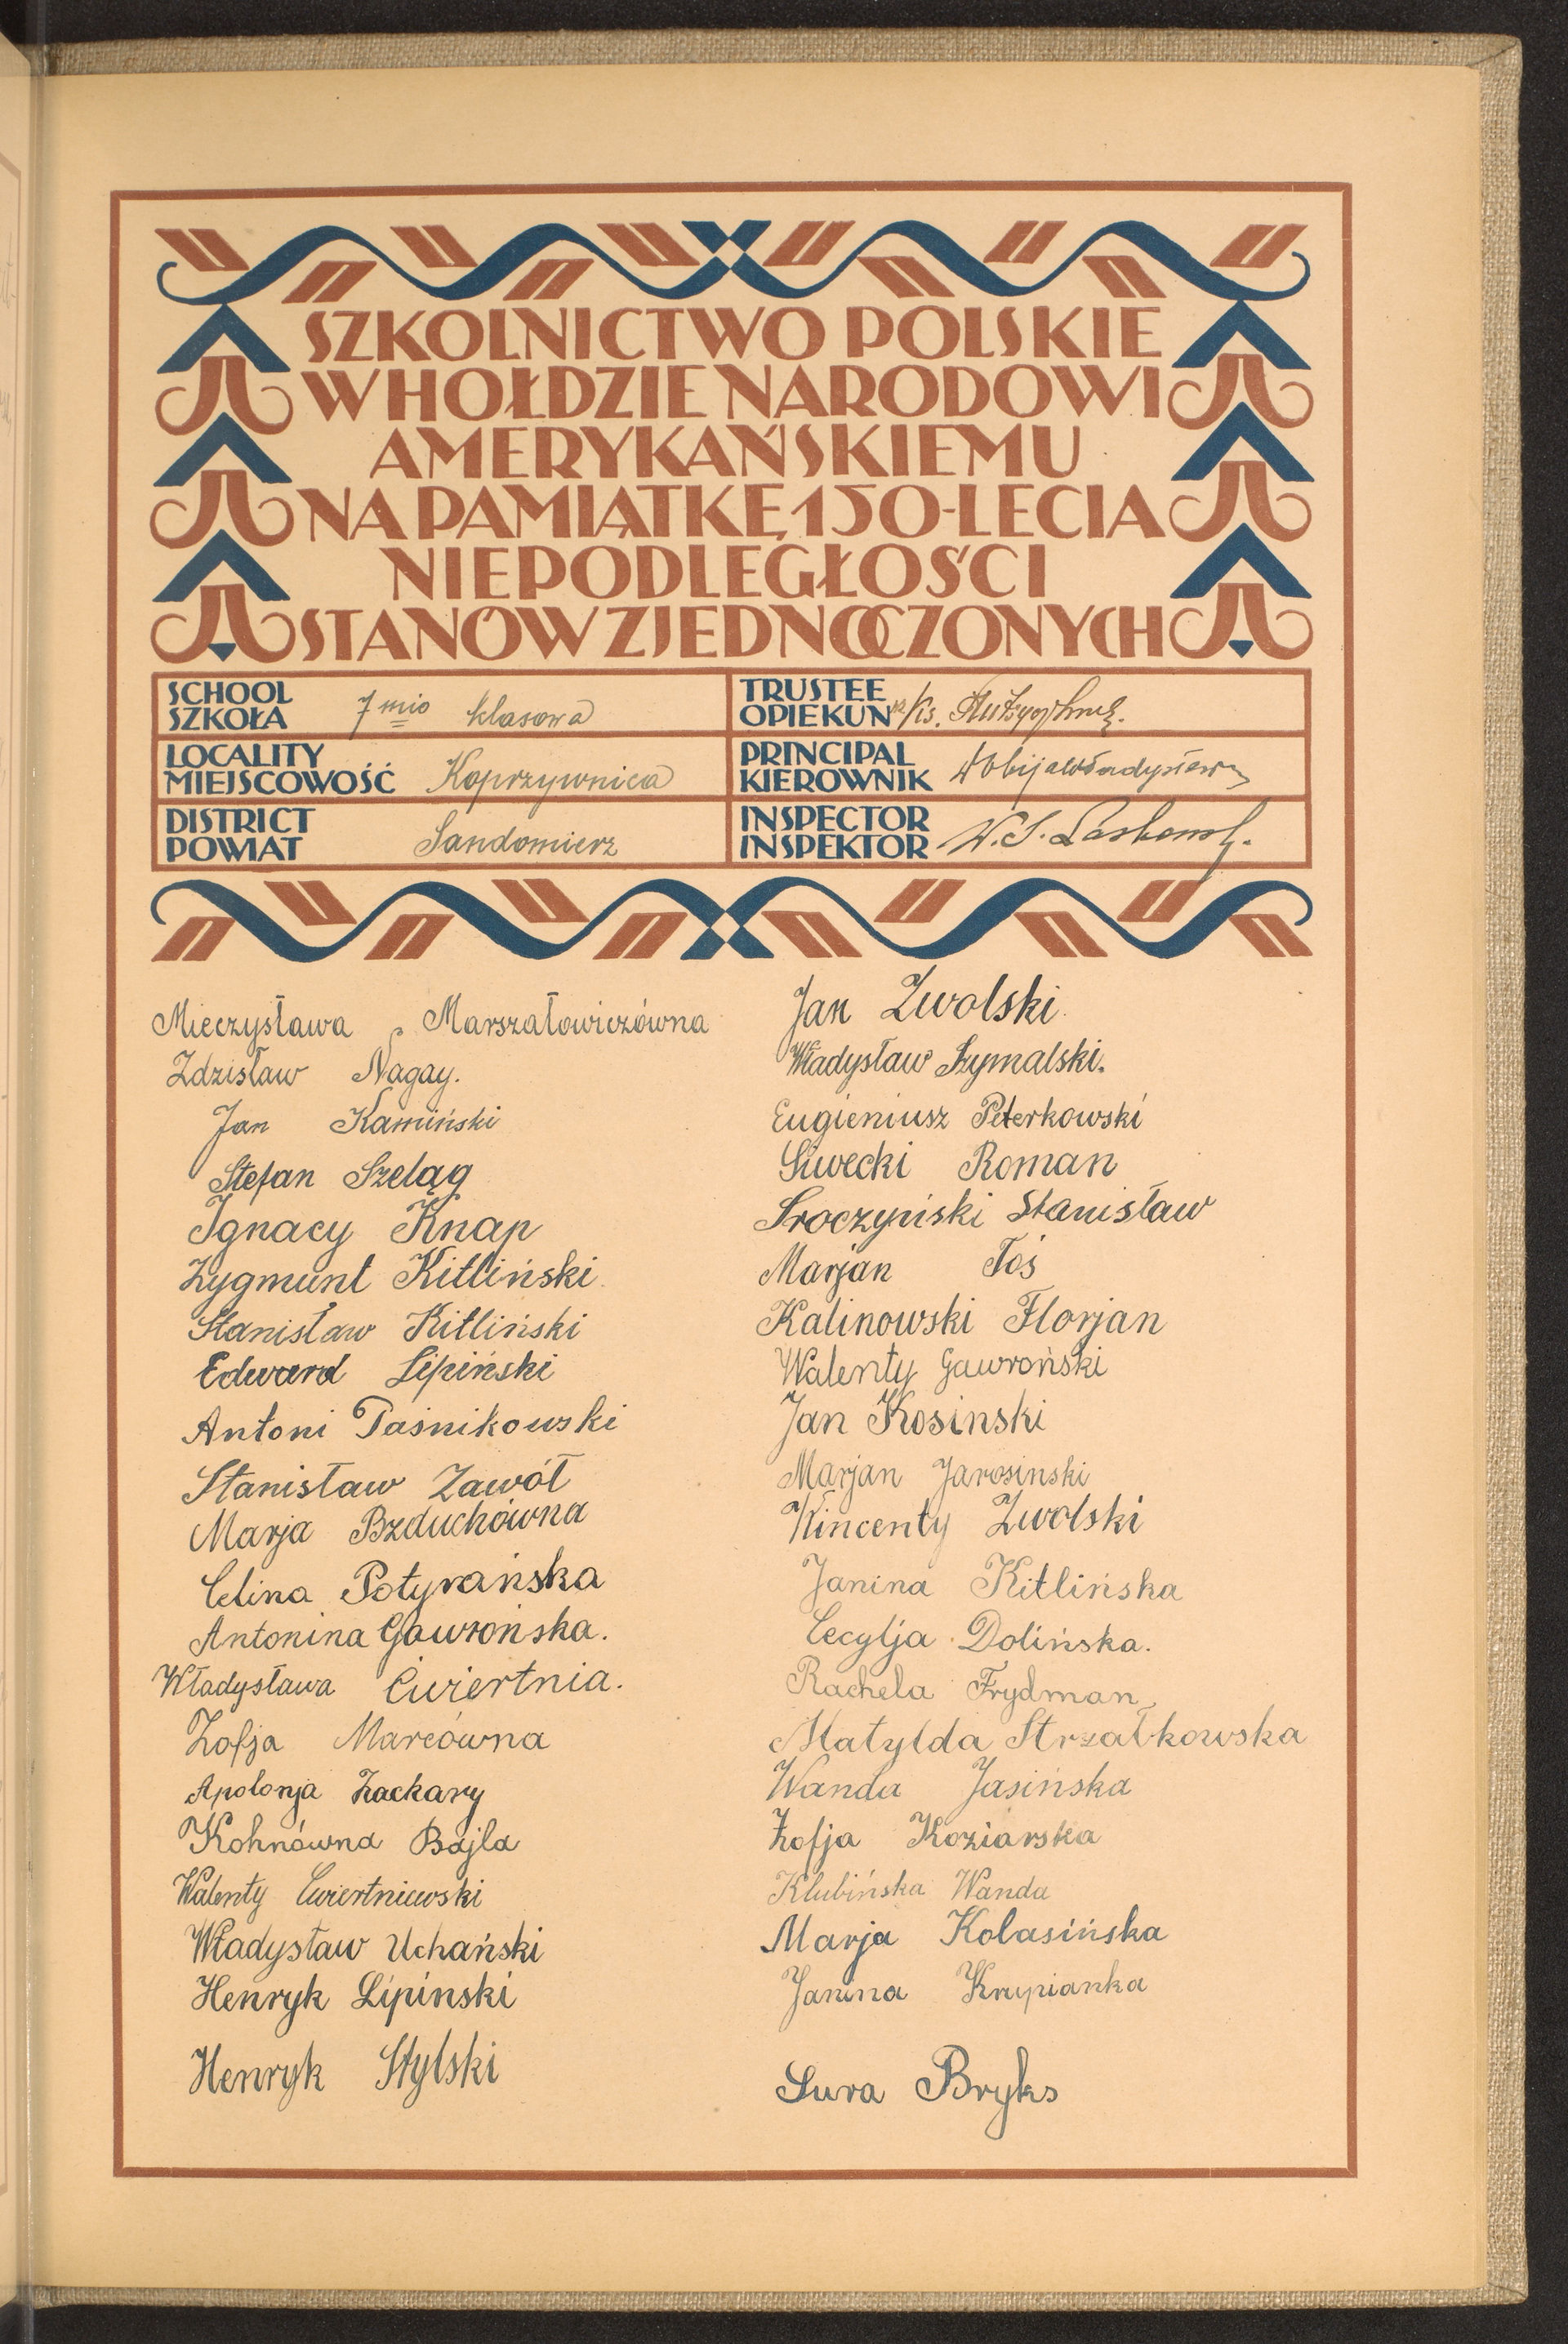 SZKOLNICTWO POLSKIE
W HOŁDZIE NARODOWI
AMERYKAŃSKIEMU
NA PAMIĄTKĘ 150-LECIA
NIEPODLEGŁOŚCI
STANÓW ZJEDNOCZONYCH
SCHOOL
SZKOŁA 7 mio klasowa
LOCALITY
MIEJSCOWOŚĆ Koprzywnica
DISTRICT
POWIAT Sandomierz
TRUSTEE
OPIEKUN Ks.
PRINCIPAL
KIEROWNIK
INSPECTOR
INSPEKTOR W. S.
Mieczysława Marszałowiczówna
Zdzisław Nagay.
Jan Kamiński
Stefan Szeląg
Ignacy Knap
Zygmunt Kitliński
Stanisław Kitliński
Edward Lipiński
Antoni Paśnikowski
Stanisław Zawół
Marja Bzduchówna
Celina Potyrańska
Antonina Gawrońska.
Władysława Ćwiertnia.
Zofja Marcówna
Apolonja Zackary
Kohnówna Bajla
Walenty Ćwiertniewski
Władysław Uchański
Henryk Lipinski
Henryk Stylski
Jan Zwolski
Władysław Szymalski.
Eugieniusz Peterkowski
Siwecki Roman
Sroczyński Stanisław
Marjan Toś
Kalinowski Florjan
Walenty Gawroński
Jan Kosinski
Marjan Jarosinski
Wincenty Zwolski
Janina Kitlińska
Cecylja Dolińska.
Rachela Frydman
Matylda Strzałkowska
Wanda Jasińska
Zofja Koziarska
Klubińska Wanda
Marja Kolasińska
Janina Krupianka
Sura Bryks